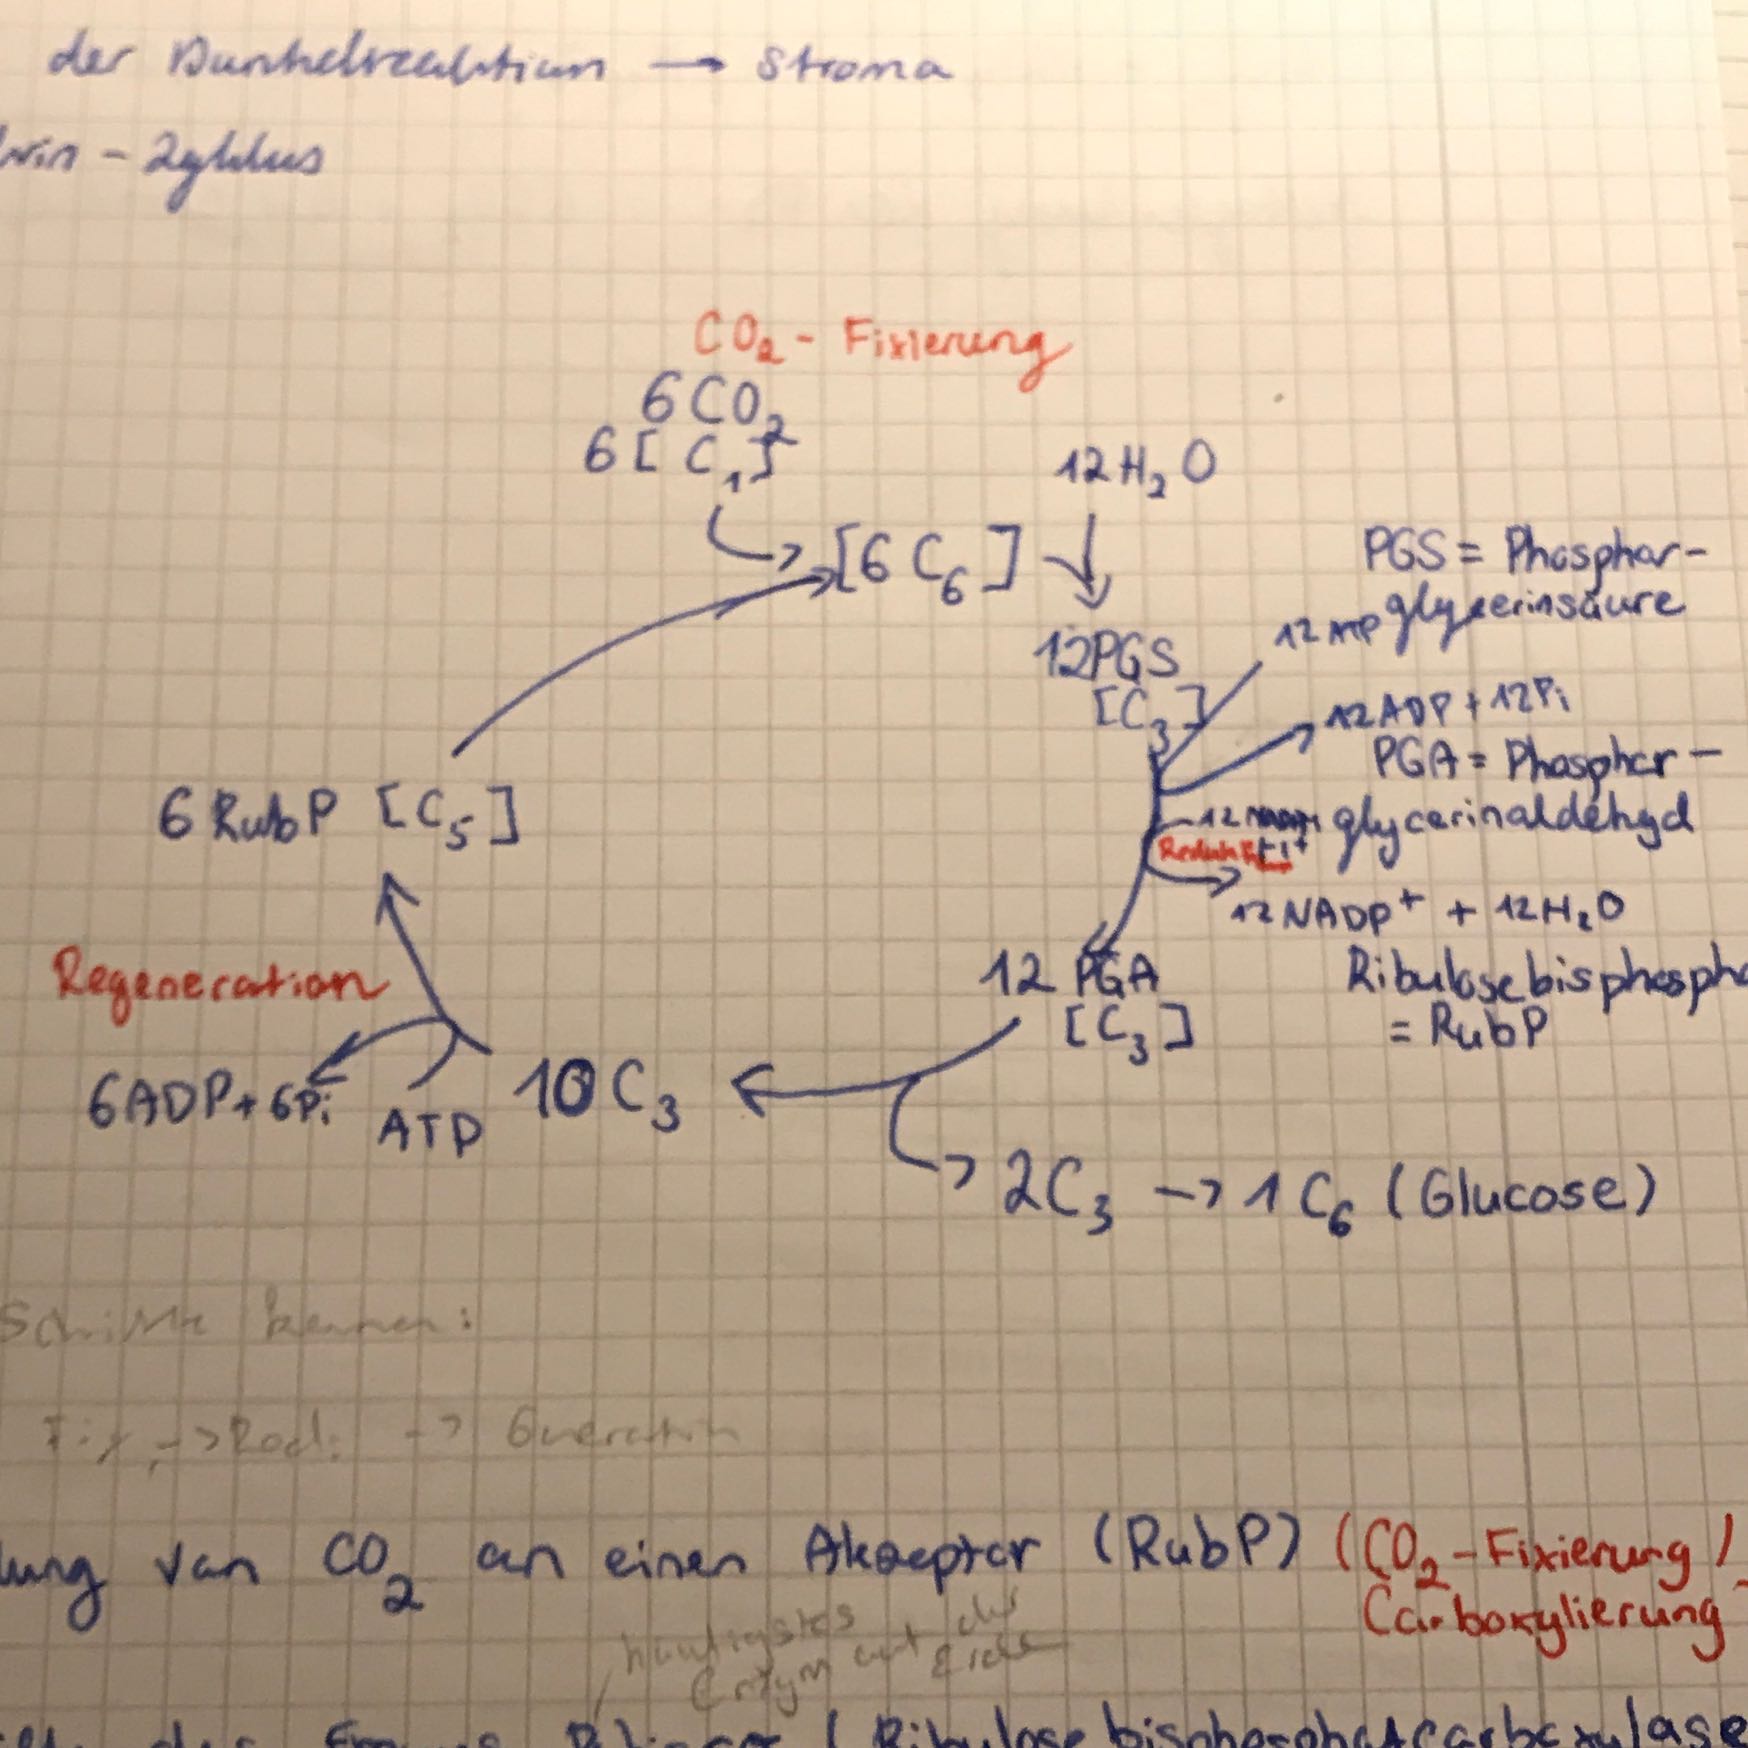 der Dunkelreaktion → Stroma
lvin - Zyklus
CO₂ - Fixierung
6 CO₂
6 [ C₁ ]
12 H₂O
[ 6 C₆ ]
PGS = Phosphor-
glycerinsäure
12 ATP
12 PGS
[C₃]
12 ADP + 12 Pi
PGA = Phosphor-
glycerinaldehyd
6 RubP [C₅]
12 NADPH
+ H⁺
12 NADP⁺ + 12 H₂O
12 PGA
[C₃]
Ribulosebisphospha
= RubP
Regeneration
6ADP + 6Pi
ATP
10 C₃
2C₃ → 1 C₆ (Glucose)
Schritte kennen:
Fix. → Red. →
lung von CO₂ an einen Akzeptor (RubP) (CO₂-Fixierung /
Carboxylierung
häufigstes
Enzym auf der
Erde
des Enzyms ( Ribulosebisphosphatcarboxylase